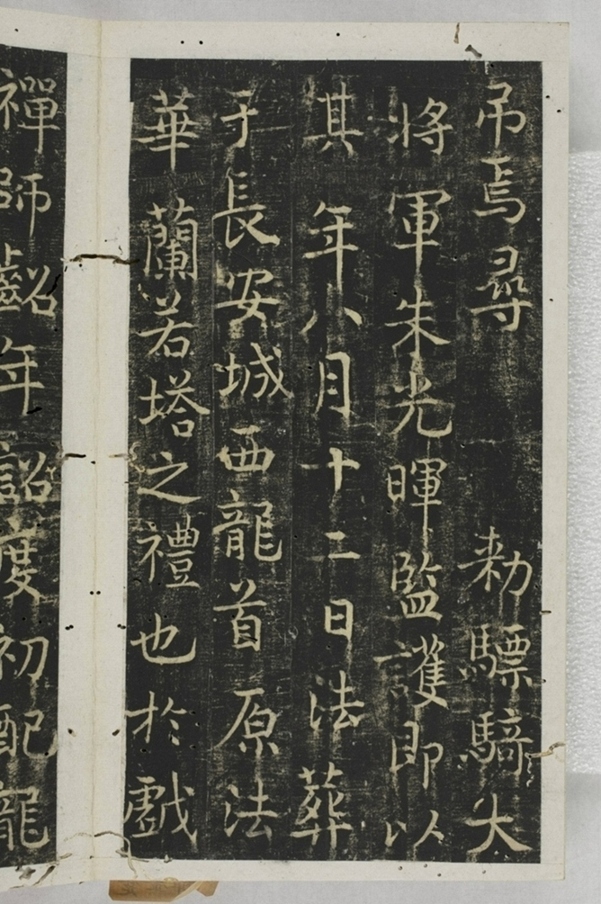 吊焉尋　勅驃騎大
將軍朱光暉監護即以
其年八月十二日法葬
于長安城西龍首原法
華蘭若塔之禮也於戲
禪師齠年詔度初配龍